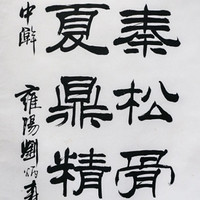 秦松骨
夏鼎精
中
雍陽劉炳森